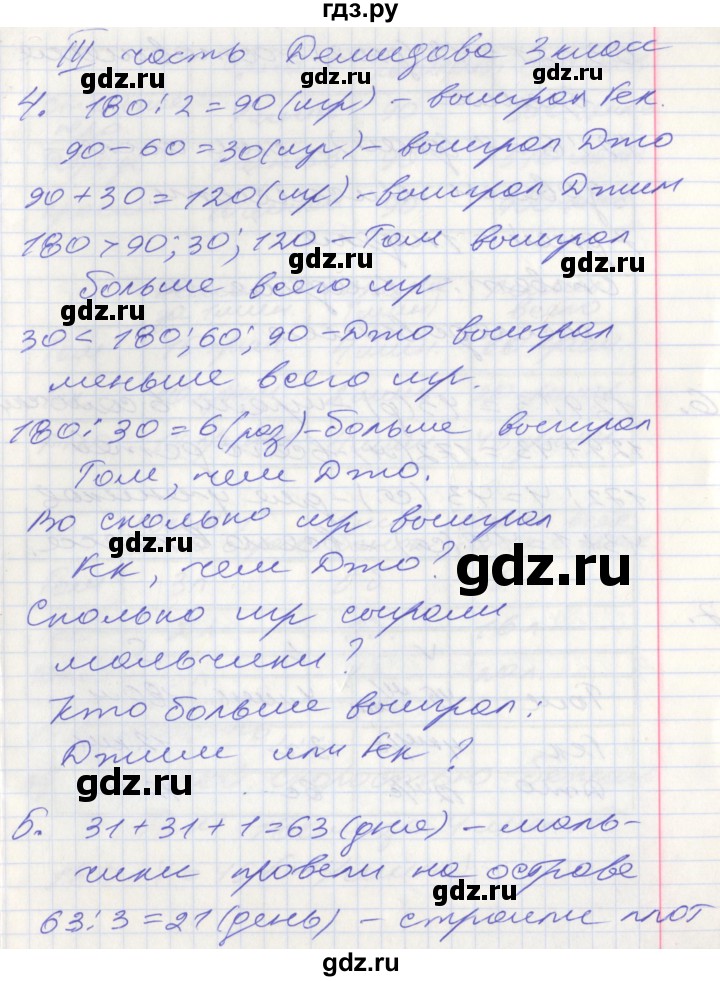 гдз.ру
III часть Демидова 3 класс
gdz.ru gdz.ru
4. 180:2=90(игр) – выиграл Гек.
90–60=30(игр) – выиграл Джо
gdz.ru gdz.ru
90+30=120(игр) – выиграл Джим
180>90;30;120 – Том выиграл
gdz.ru gdz.ru
больше всего игр
gdz.ru
30<180;60;90 – Джо выиграл
gdz.ru
меньше всего игр.
gdz.ru
180:30=6(раз) – больше выиграл
gdz.ru
Том, чем Джо.
Во сколько игр выиграл
gdz.ru
Гек, чем Джо?
gdz.ru
Сколько игр сыграли
мальчики?
gdz.ru
Кто больше выиграл:
Джим или Гек?
gdz.ru
6. 31+31+1=63(дня) – маль-
чики провели на острове
gdz.ru gdz.ru
63:3=21(день) – строили плот
gdz.ru